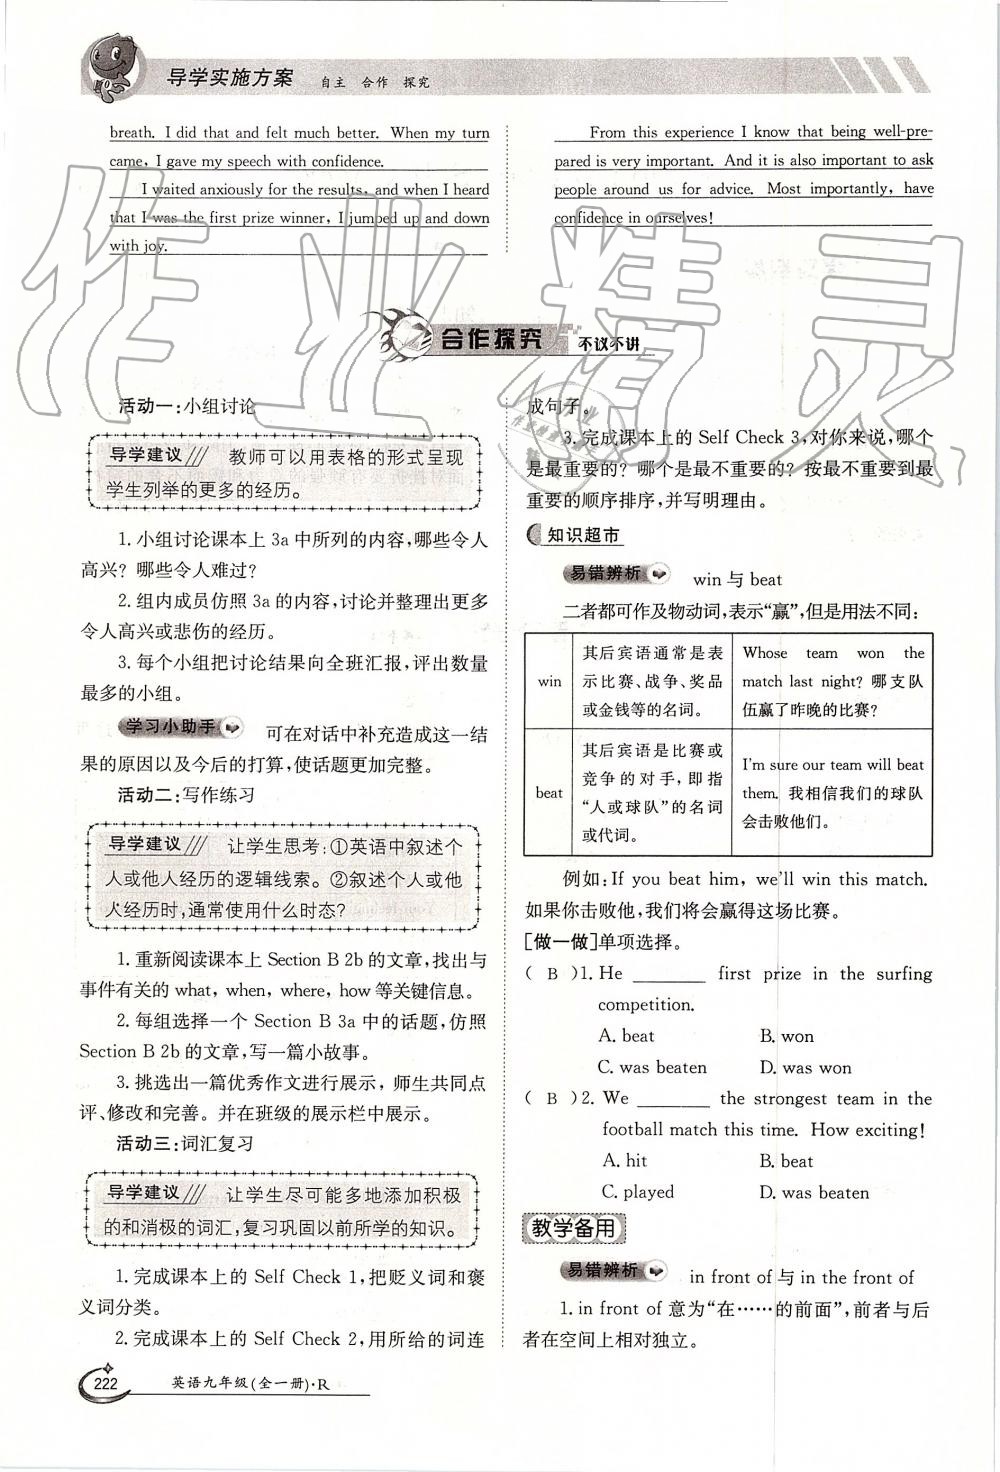 导学实施方案 自主 合作 探究
breath. I did that and felt much better. When my turn
came, I gave my speech with confidence.
I waited anxiously for the results, and when I heard
that I was the first prize winner, I jumped up and down
with joy.
From this experience I know that being well-pre-
pared is very important. And it is also important to ask
people around us for advice. Most importantly, have
confidence in ourselves!
合作探究 不议不讲
活动一:小组讨论
导学建议 教师可以用表格的形式呈现
学生列举的更多的经历。
1. 小组讨论课本上 3a 中所列的内容,哪些令人
高兴? 哪些令人难过?
2. 组内成员仿照 3a 的内容,讨论并整理出更多
令人高兴或悲伤的经历。
3. 每个小组把讨论结果向全班汇报,评出数量
最多的小组。
学习小助手 可在对话中补充造成这一结
果的原因以及今后的打算,使话题更加完整。
活动二:写作练习
导学建议 让学生思考:①英语中叙述个
人或他人经历的逻辑线索。②叙述个人或他
人经历时,通常使用什么时态?
1. 重新阅读课本上 Section B 2b 的文章,找出与
事件有关的 what, when, where, how 等关键信息。
2. 每组选择一个 Section B 3a 中的话题,仿照
Section B 2b 的文章,写一篇小故事。
3. 挑选出一篇优秀作文进行展示,师生共同点
评、修改和完善。并在班级的展示栏中展示。
活动三:词汇复习
导学建议 让学生尽可能多地添加积极
的和消极的词汇,复习巩固以前所学的知识。
1. 完成课本上的 Self Check 1,把贬义词和褒
义词分类。
2. 完成课本上的 Self Check 2,用所给的词连
成句子。
3. 完成课本上的 Self Check 3,对你来说,哪个
是最重要的? 哪个是最不重要的? 按最不重要到最
重要的顺序排序,并写明理由。
知识超市
易错辨析 win 与 beat
二者都可作及物动词,表示“赢”,但是用法不同:
win 其后宾语通常是表示比赛、战争、奖品或金钱等的名词。 Whose team won the match last night? 哪支队伍赢了昨晚的比赛?
beat 其后宾语是比赛或竞争的对手,即指“人或球队”的名词或代词。 I'm sure our team will beat them. 我相信我们的球队会击败他们。
例如:If you beat him, we'll win this match.
如果你击败他,我们将会赢得这场比赛。
[做一做]单项选择。
( B )1. He ________ first prize in the surfing
competition.
A. beat B. won
C. was beaten D. was won
( B )2. We ________ the strongest team in the
football match this time. How exciting!
A. hit B. beat
C. played D. was beaten
教学备用
易错辨析 in front of 与 in the front of
1. in front of 意为“在……的前面”,前者与后
者在空间上相对独立。
222 英语九年级(全一册)·R
作业精灵